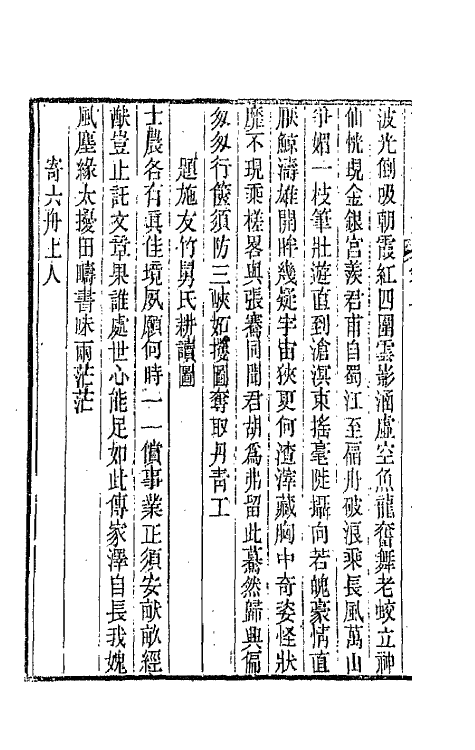 波光倒吸朝霞紅四圍雲影涵虛空魚龍奮舞老蛟立神
仙恍現金銀宮羨君甫自蜀江至福舟破浪乘長風萬山
爭媚一枝筆壯遊直到滄溟東搖毫陡攝向若魄豪情直
厭鯨濤雄開眸幾疑宇宙狹更何渣滓藏胸中奇姿怪狀
靡不現乘槎畧與張騫同聞君胡為弗留此驀然歸興偏
匆匆行篋須防三峽妬攫圖奪取丹青工
題施友竹舅氏耕讀圖
士農各有眞佳境夙願何時一一償事業正須安畎畝經
猷豈止託文章果誰處世心能足如此傳家澤自長我媿
風塵緣太擾田疇書味兩茫茫
寄六舟上人